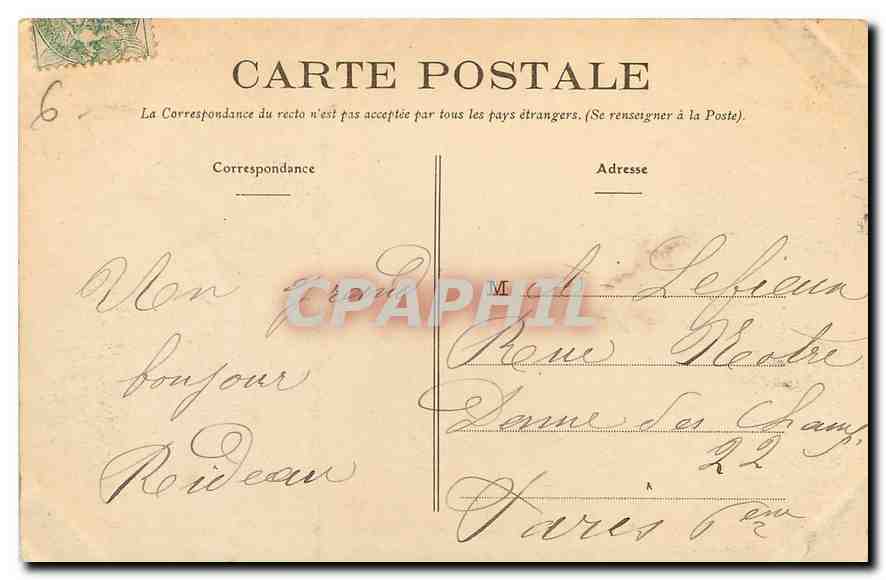 CARTE POSTALE
La Correspondance du recto n'est pas acceptée par tous les pays étrangers. (Se renseigner à la Poste).
6
Correspondance
Un grand
bonjour
Rideau
Adresse
M Lefieux
Rue Notre
Dame des Champs
22
Paris 6eme
CPAPHIL